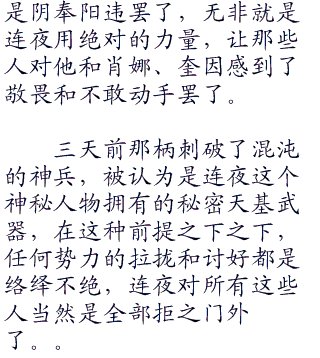 是阴奉阳违罢了，无非就是
连夜用绝对的力量，让那些
人对他和肖娜、奎因感到了
敬畏和不敢动手罢了。
三天前那柄刺破了混沌
的神兵，被认为是连夜这个
神秘人物拥有的秘密天基武
器，在这种前提之下之下，
任何势力的拉拢和讨好都是
络绎不绝，连夜对所有这些
人当然是全部拒之门外
了。。